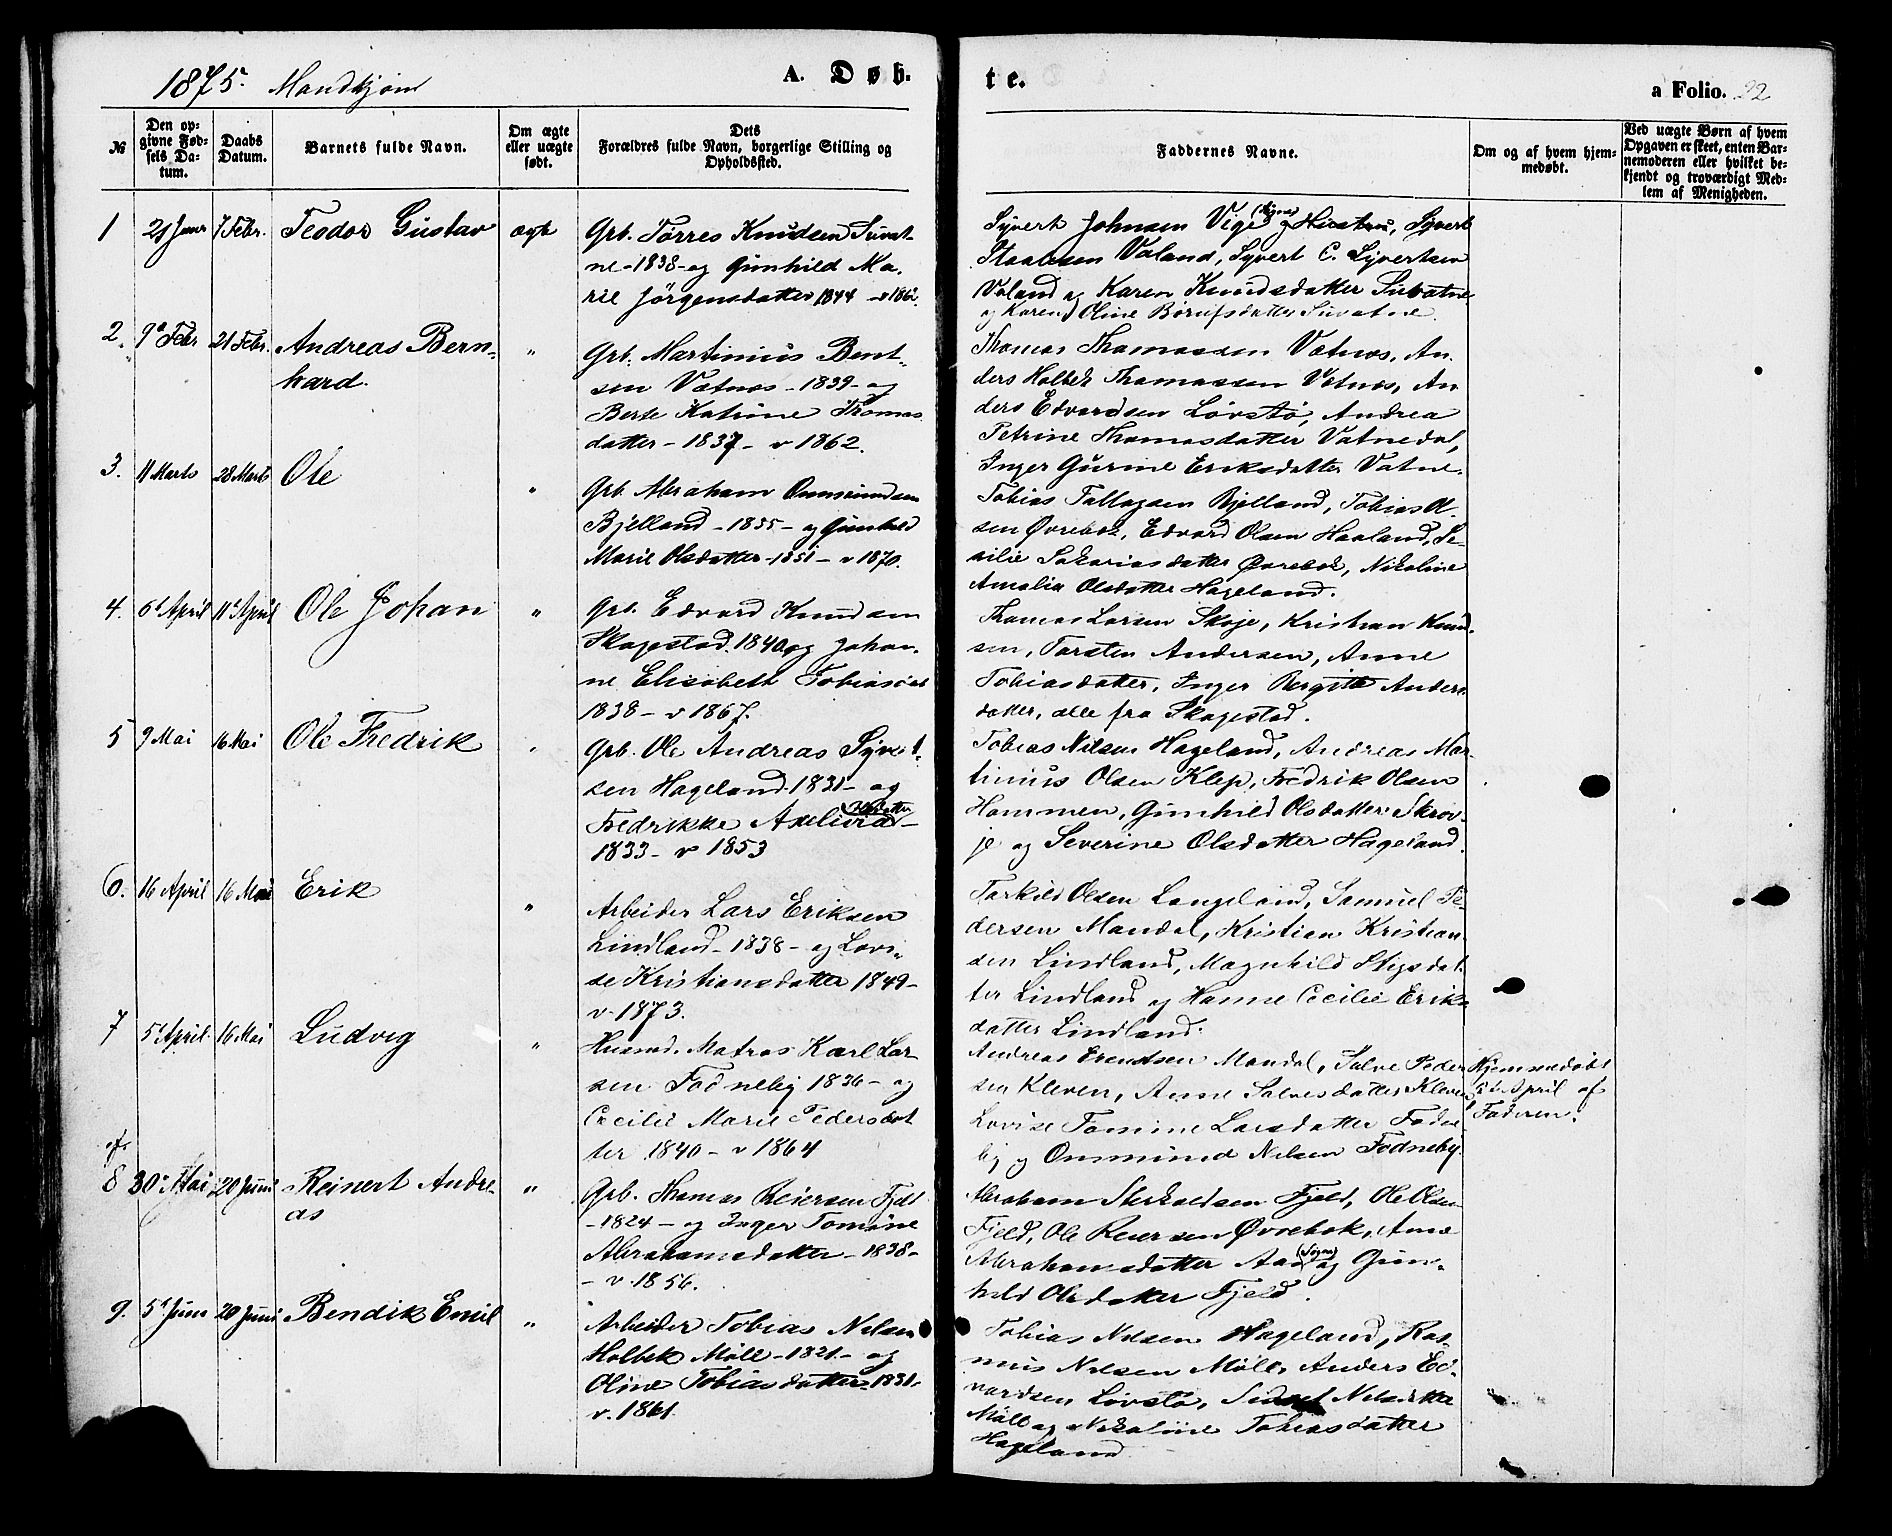 1875. Mandkjøn
A. Døb-
te.
a Folio. 22
№
Den op-
givne Fød-
sels Da-
tum.
Daabs
Datum.
Barnets fulde Navn.
Om ægte
eller uægte
født.
Dets
Forældres fulde Navn, borgerlige Stilling og
Opholdssted.
Faddernes Navne.
Om og af hvem hjem-
medøbt.
Ved uægte Børn af hvem
Opgaven er skeet, enten Bar-
nemoderen eller hvilket be-
kjendt og troværdigt Med-
lem af Menigheden.
1
21 Janr
7 Febr.
Teodor Gustav
ægte
Grb. Tørres Knudsen Suvat-
ne - 1838 - og Gunhild Ma-
rie Jörgensdatter 1844 - v 1862.
Syvert Johnsen Vige (Sogne) og Hustru, Syvert
Staalesen Valand, Syvert C. Syvertsen
Valand og Karen Knudsdatter Suvatne
og Karen Oline Børufsdatter Suvatne.
2.
9de Febr
21 Febr.
Andreas Bern-
hard.
"
Grb. Martinius Bent-
sen Vatnas - 1839 - og
Berte Katrine Thomas
datter - 1837 - v 1862.
Thomas Thomassen Vatnas, An-
ders Holbek Thomassen Vatnas, An-
ders Edvardsen Løvstø, Andrea
Petrine Thomasdatter Vatnedal,
Inger Gurine Eriksdatter Vatne.
3.
11 Marts
28 Marts
Ole
"
Grb. Abraham Onmundsen
Bjelland - 1835 - og Gunhild
Marie Olsdatter - 1851 - v 1870.
Tobias Tallagsen Bjelland, Tobias Ol-
sen Øvrebøk, Edvard Olsen Haaland, Se-
silie Sakariasdatter Øvrebøk, Nikoline
Amalia Olsdatter Hageland.
4.
6te April
11te April
Ole Johan
"
Grb. Edvard Knudsen
Skagestad. 1840 og Johan-
ne Elisabeth Tobiasdat
1838 - v 1867.
Thomas Larsen Skoje, Kristian Knud-
sen, Tarsten Andersen, Anne
Tobiasdatter, Inger Bergitte Anders
datter, alle fra Skagestad.
5
9 Mai
16 Mai
Ole Fredrik
"
Grb. Ole Andreas Syvert-
sen Hageland - 1831 - og
Fredrikke Axeliva Olsdatter -
1833 - v 1853
Tobias Nilsen Hageland, Andreas Mar-
tinius Olsen Klep, Fredrik Olsen
Hammen, Gunhild Olsdatter Skrov-
je og Severine Olsdatter Hageland.
6.
16 April
16 Mai
Erik
"
Arbeider Lars Eriksen
Lindland - 1838 - og Lovi-
se Kristiansdatter 1849 -
v. 1873.
Tarkild Olsen Langeland, Samuel Pe-
dersen Mandal, Kristian Kristian-
sen Lindland, Magnhild Stigsdat-
ter Lindland og Hanne Cecilie Eriks
datter Lindland.
7
5te April
16 Mai
Ludvig
"
Husmd. Matros Karl Lar-
sen Fodneby 1836 - og
Cecilie Marie Pedersdat
ter 1840 - v 1864
Andreas Evendsen Mandal, Salve Peder
sen Kleven, Anne Salvesdatter Kleven
Lovise Tomine Larsdatter Fodne
by og Onsmund Nilsen Fodneby.
Hjemmedøbt
5te April af
Faderen.
8
30te Mai
20 Juni
Reinert Andre-
as
"
Grb. Thomas Reiersen Fjeld
- 1824 - og Inger Tomine
Abrahamsdatter - 1838 -
- v. 1856.
Abraham Sterkoldsen Fjeld, Ole Olsen
Fjeld, Ole Reiersen Øvrebøk, Anne
Abrahamsdatter Aas (Sogne) og Gun-
hild Olsdatter Fjeld.
9.
5te Juni
20 Juni
Bendik Emil
"
Arbeider Tobias Nilsen
Holbek Möll - 1821 - og
Oline Tobiasdatter 1831 -
v. 1861.
Tobias Nilsen Hageland, Ras-
mus Nilsen Möll, Anders Ed-
vardsen Løvstø, Nilsdatter
Möll og Nikoline Tobiasdatter
Hageland